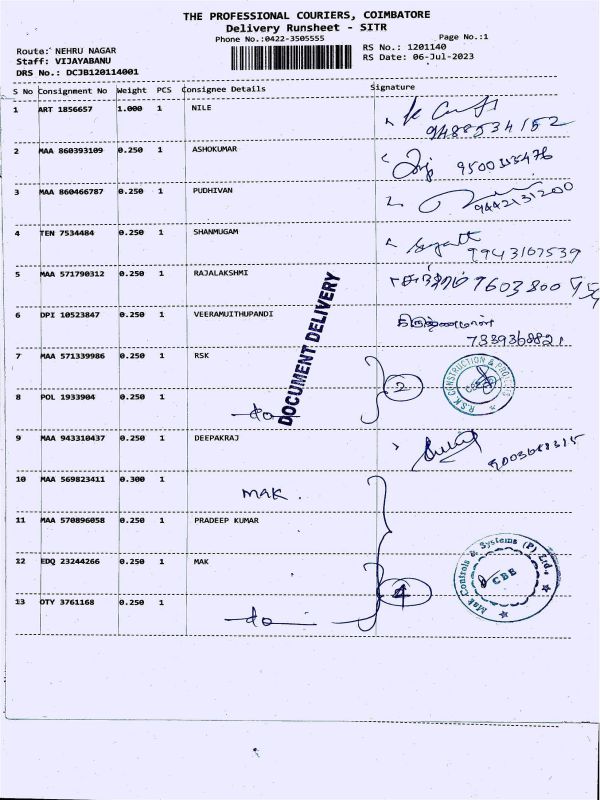 THE PROFESSIONAL COURIERS, COIMBATORE
Delivery Runsheet - SITR
Phone No.:0422-3505555 Page No.:1
Route: NEHRU NAGAR RS No.: 1201140
Staff: VIJAYABANU RS Date: 06-Jul-2023
DRS No.: DCJB120114001
S No Consignment No Weight PCS Consignee Details Signature
1 ART 1856657 1.000 1 NILE
9488534152
2 MAA 860393109 0.250 1 ASHOKUMAR
3 MAA 860466787 0.250 1 PUDHIVAN
9442131200
4 TEN 7534484 0.250 1 SHANMUGAM
9943167539
5 MAA 571790312 0.250 1 RAJALAKSHMI
6 DPI 10523847 0.250 1 VEERAMUITHUPANDI
7339368821
DOCUMENT DELIVERY
7 MAA 571339986 0.250 1 RSK
2
8 POL 1933904 0.250 1
do
9 MAA 943310437 0.250 1 DEEPAKRAJ
10 MAA 569823411 0.300 1 MAK.
11 MAA 570896058 0.250 1 PRADEEP KUMAR
12 EDQ 23244266 0.250 1 MAK
Mak Controls & Systems (P) Ltd.,
CBE
4
13 OTY 3761168 0.250 1
do